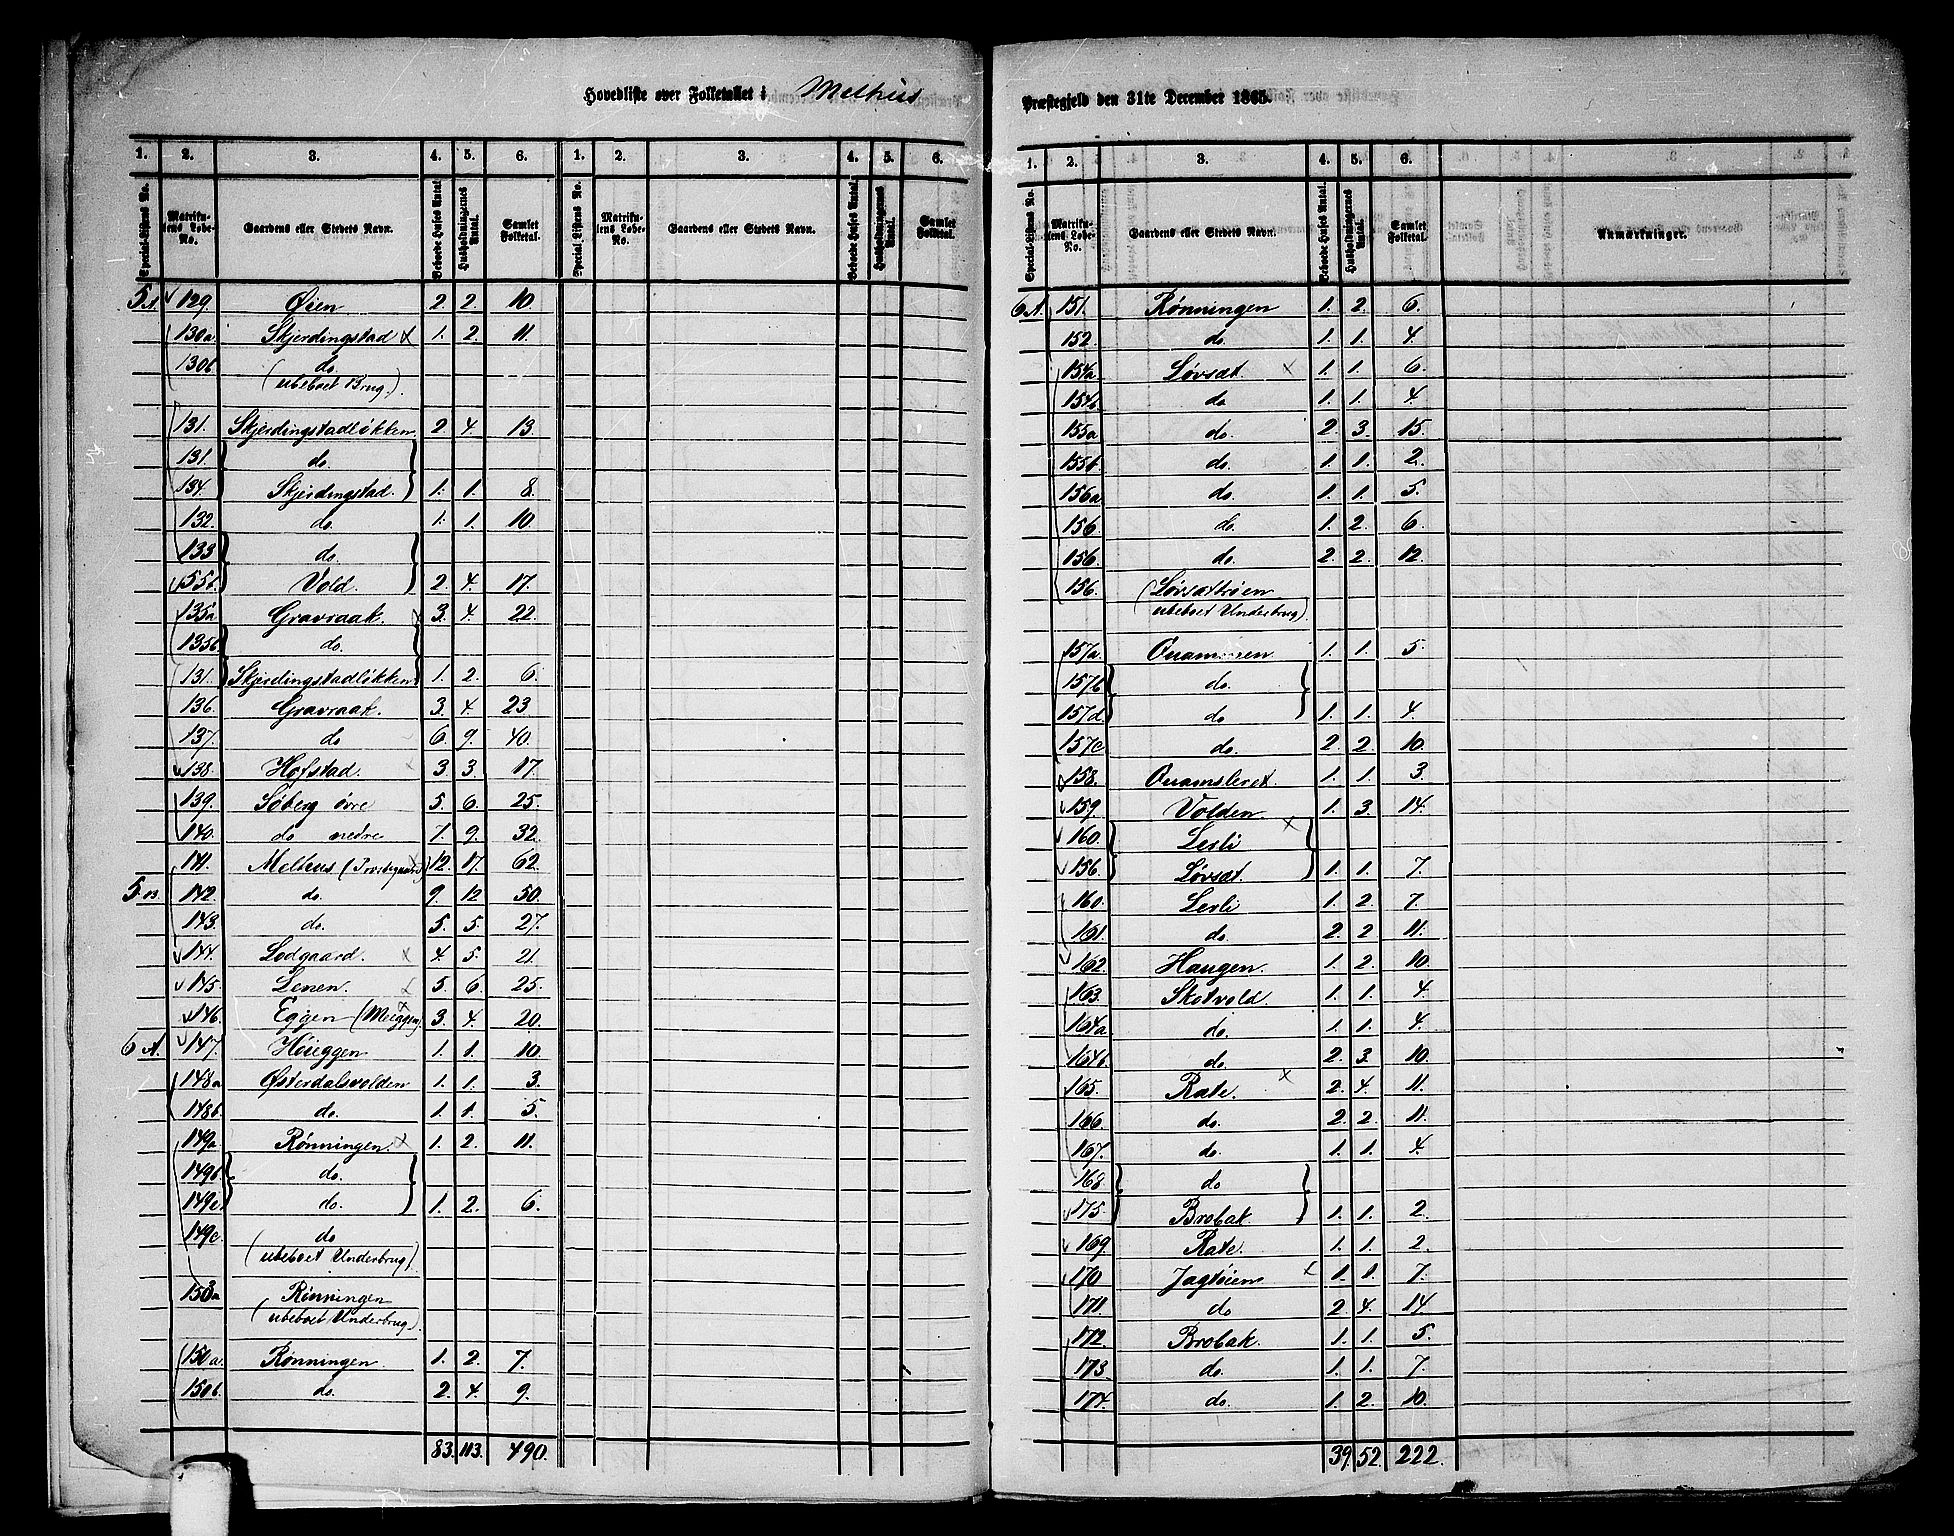 Hovedliste over Folketallet i Melhus
1. 2. 3. 4. 5. 6. 1. 2. 3. 4. 5. 6.
Special-Listens No. Matrikulens Løbe-No. Gaardens eller Stedets Navn. Beboede Huses Antal. Husholdningernes Antal. Samlet Folketal. Special-Listens No. Matrikulens Løbe-No. Gaardens eller Stedets Navn. Beboede Huses Antal. Husholdningernes Antal. Samlet Folketal.
5A 129. Øien 2. 2. 10.
130a Skjerdingstad x 1. 2. 11.
130b do.
(ubeboet Brug).
131. Skjerdingstadløkken 2. 4. 13.
131. do.
134. Skjerdingstad. 1. 1. 8.
132. do. 1. 1. 10
133 do.
55b. Vold. 2. 4. 17.
135a Gravraak. x 3. 4. 22.
135b do.
131. Skjerdingstadløkken 1. 2. 6.
136. Gravraak. 3. 4. 23
137. do 6. 9. 40.
138. Hofstad. 3. 3. 17.
139. Søberg övre 5. 6. 25.
140. do nedre 7. 9. 32.
141. Melhus (Prestegaard) 12. 17. 62.
5B 142. do. 9. 12 50.
143. do. 5. 5. 27.
144. Lodgaard. x 4. 5. 21.
145 Lenen. x 5. 6. 25.
146. Eggen (Meeggen) 3. 4. 20.
6A. 147. Höieggen 1. 1. 10.
148a Østerdalsvolden 1. 1. 3.
148b. do. 1. 1. 5.
149a Rønningen. x 1. 2. 11.
149b. do.
149c. do. 1. 2. 6.
149c. do
(ubeboet Underbrug).
150a Rønningen
(ubeboet Underbrug.)
150a. Rønningen 1. 2. 7.
150b. do. 2. 4. 9.
83. 113. 490.
Præstegjeld den 31te December 1865.
1. 2. 3. 4. 5. 6.
Special-Listens No. Matrikulens Løbe-No. Gaardens eller Stedets Navn. Beboede Huses Antal. Husholdningernes Antal. Samlet Folketal. Anmærkninger.
6A. 151. Rønningen 1. 2. 6.
152. do. 1. 1. 4.
154a Løvsæt. x 1. 1. 6.
154b. do 1. 1. 4.
155a do. 2. 3. 15.
155b do. 1. 1. 2.
156a do. 1. 1. 5.
156. do. 1. 2. 6.
156. do. 2. 2. 12.
156. (Løvsættrøen
ubeboet Underbrug)
157a 1. 1. 5.
157b do.
157d. do 1. 1. 4.
157c do. 2. 2. 10.
158. Quamsleret. 1. 1. 3.
159. Volden 1. 3. 14.
160. Lerli x
156. Løvsæt. 1. 1. 7.
160. Lerli 1. 2. 7.
161. do. 2. 2 11.
162. Haugen. 1. 2. 10.
163. Skotvold. 1. 1. 4.
164a do. 1. 1. 4.
164b. do. 2. 3. 10.
165. Rate. x 2. 4. 11.
166. do. 2. 2. 11.
167. do. 1. 1. 4.
168. do
175. Brobak 1. 1. 2.
169. Rate. 1. 1. 2.
170 Jagtøien x 1. 1. 7.
171. do 2. 4. 14.
172. Brobak. 1. 1. 5.
173. do. 1. 1. 7.
174. do. 1. 2. 10.
39. 52. 222.